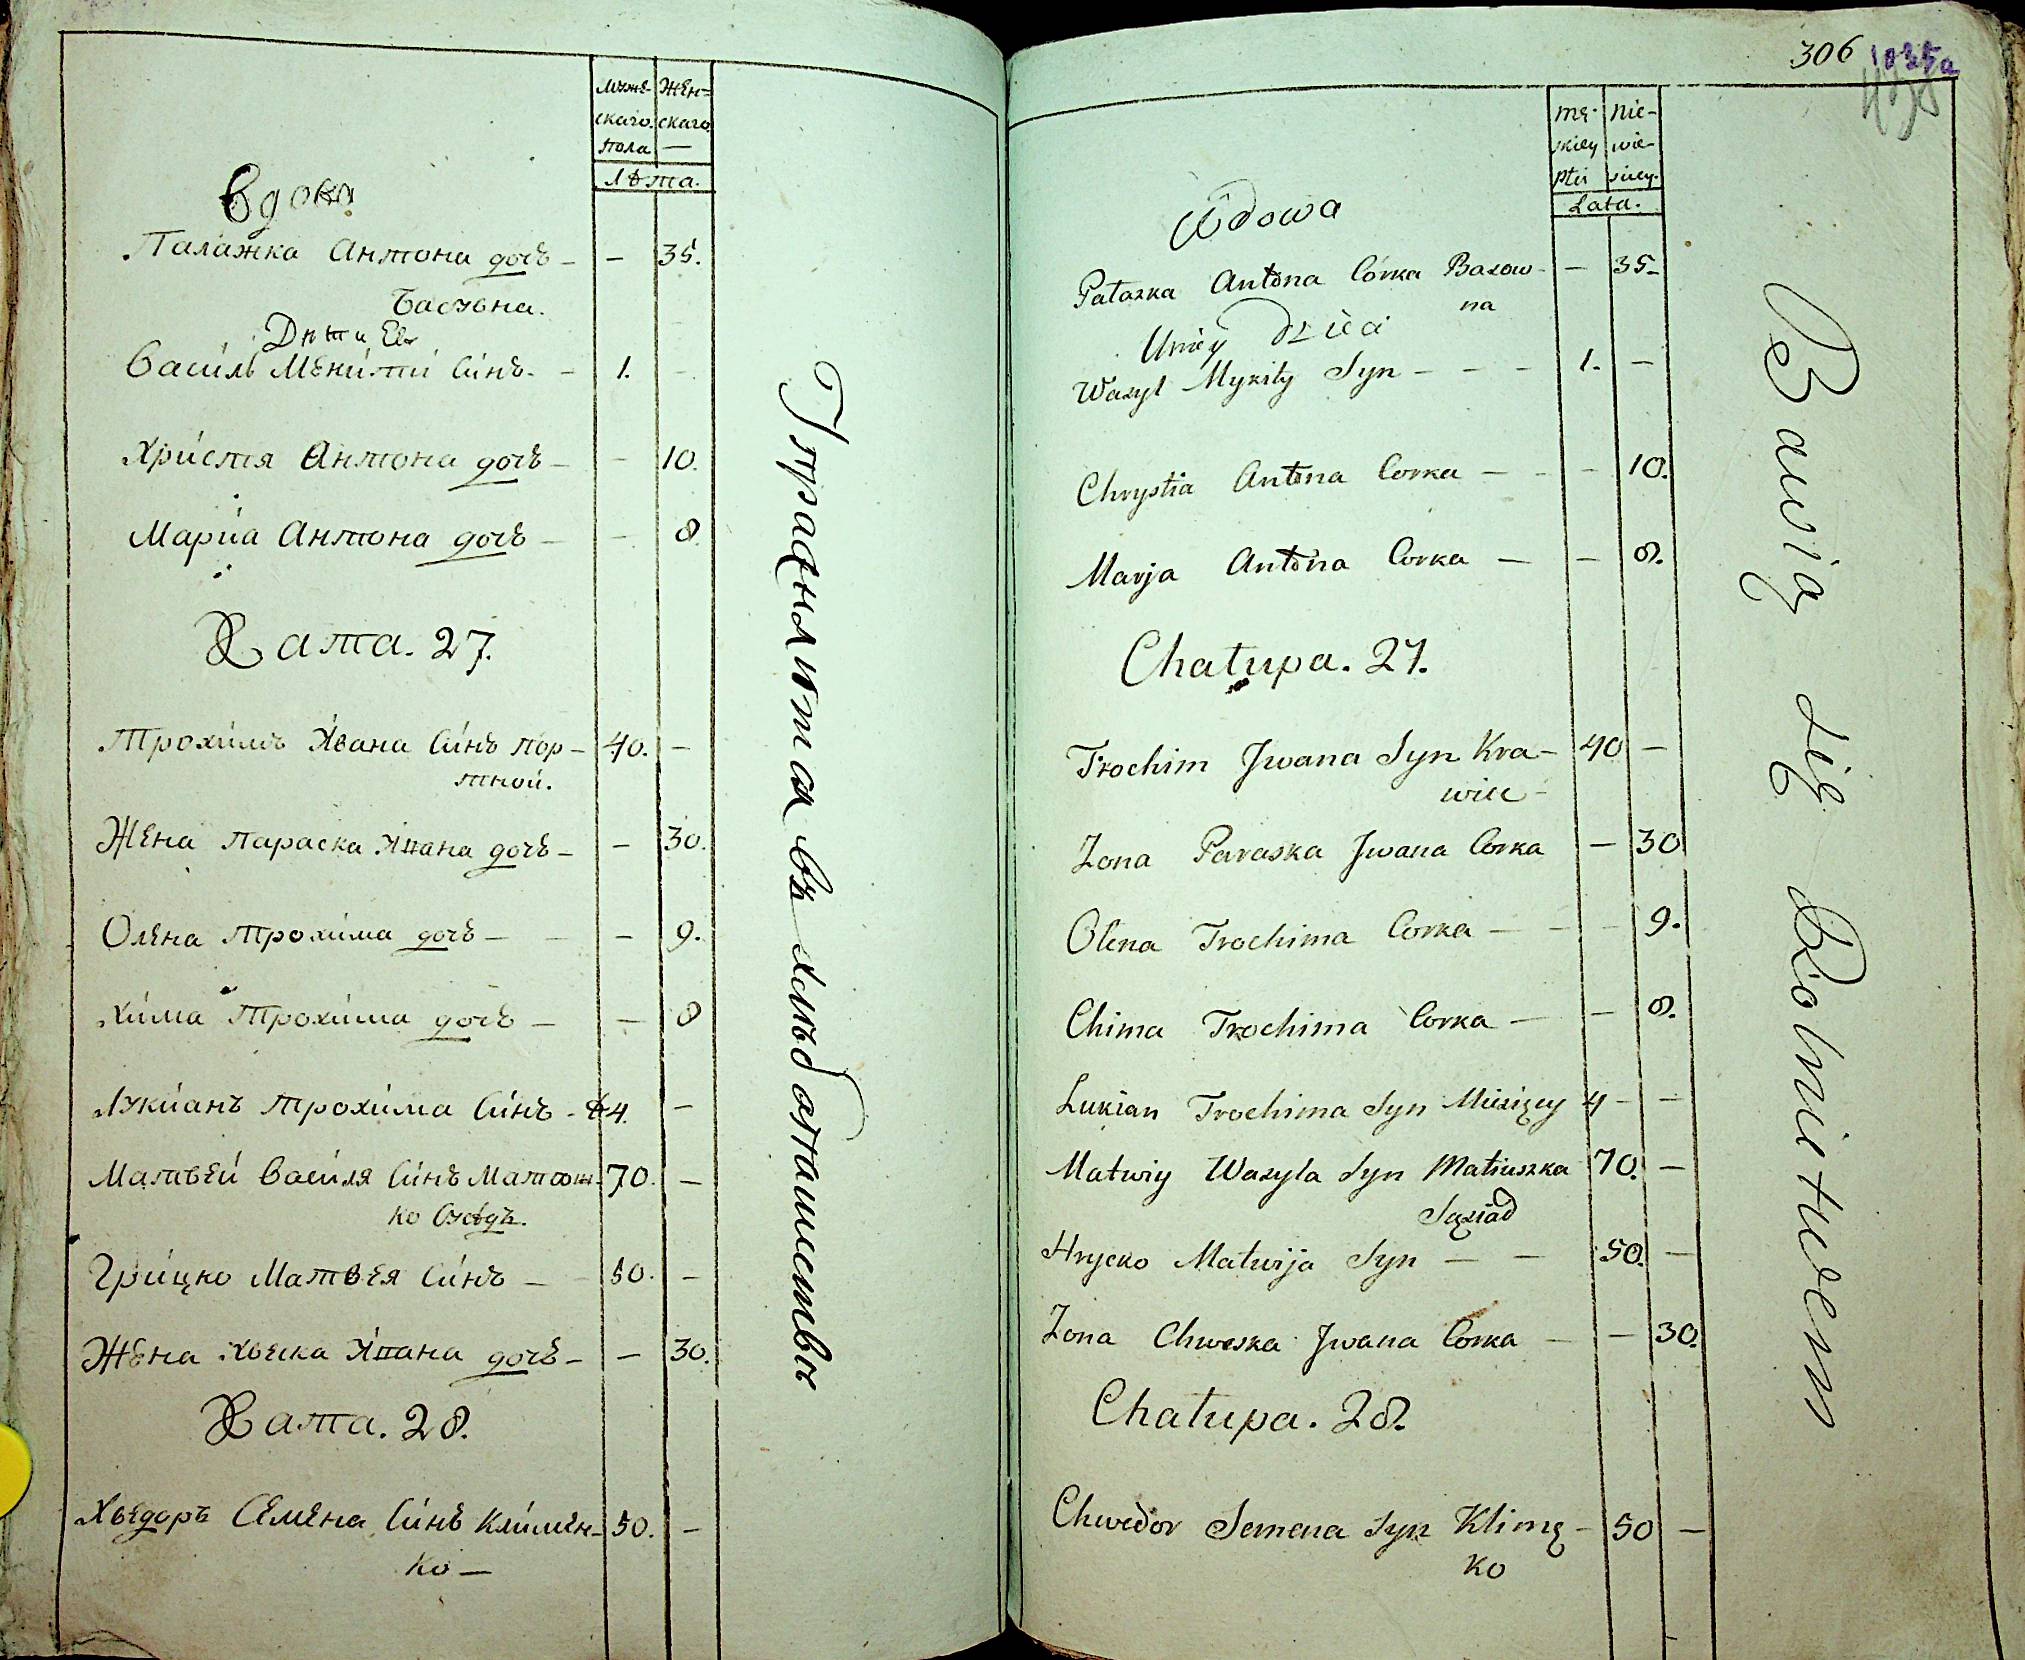 Муже- Жен=
скаго скаго
пола —
Лѣта.
Вдова
Палажка Антона дочъ — — 35.
Басузна.
Дѣти Ев
Василь Мекити Синъ. — 1. —
Христя Антона дочъ — — 10.
Мариа Антона дочъ — — 8.
Хата. 27.
Трохимъ Ивана Синъ пор- 40. —
тной.
Жена Параска Ивана дочъ — — 30.
Олена Трохима дочъ — — 9.
Хима Трохима дочъ — — 8
Лукианъ Трохима Синъ - 4. —
Матвей Василя Синъ Матюш- 70. —
ко Сусѣдъ.
Грицко Матвея Синъ — 50. —
Жена Хвеска Ивана дочъ — — 30.
Хата. 28.
Хведоръ Семена Синъ Климен- 50. —
ко —
Упражняются въ хлѣбопашествѣ
306 1035а
Mę- Nie-
skiey wie-
płci sciey.
Lata.
Wdowa
Pałaszka Antona Córka Bazow- — 35-
na
Uniey Dzieci
Wasyl Mykity Syn — — — 1. —
Chrystia Antona Corka — — — 10.
Marja Antona Corka — — 8.
Chałupa. 27.
Trochim Jwana Syn Kra- 40 —
wiec —
Zona Paraska Jwana Corka — 30
Olena Trochima Corka — — — 9.
Chima Trochima Corka — — 8.
Lukian Trochima Syn Miesięcy 4 — —
Matwiy Wasyla Syn Matiuszka 70. —
Sąsiad
Hrycko Matwija Syn — — 50. —
Zona Chweska Jwana Corka — — 30.
Chałupa. 28.
Chwedor Semena Syn Klimę- 50 —
ko
Bawią się Rolnictwem